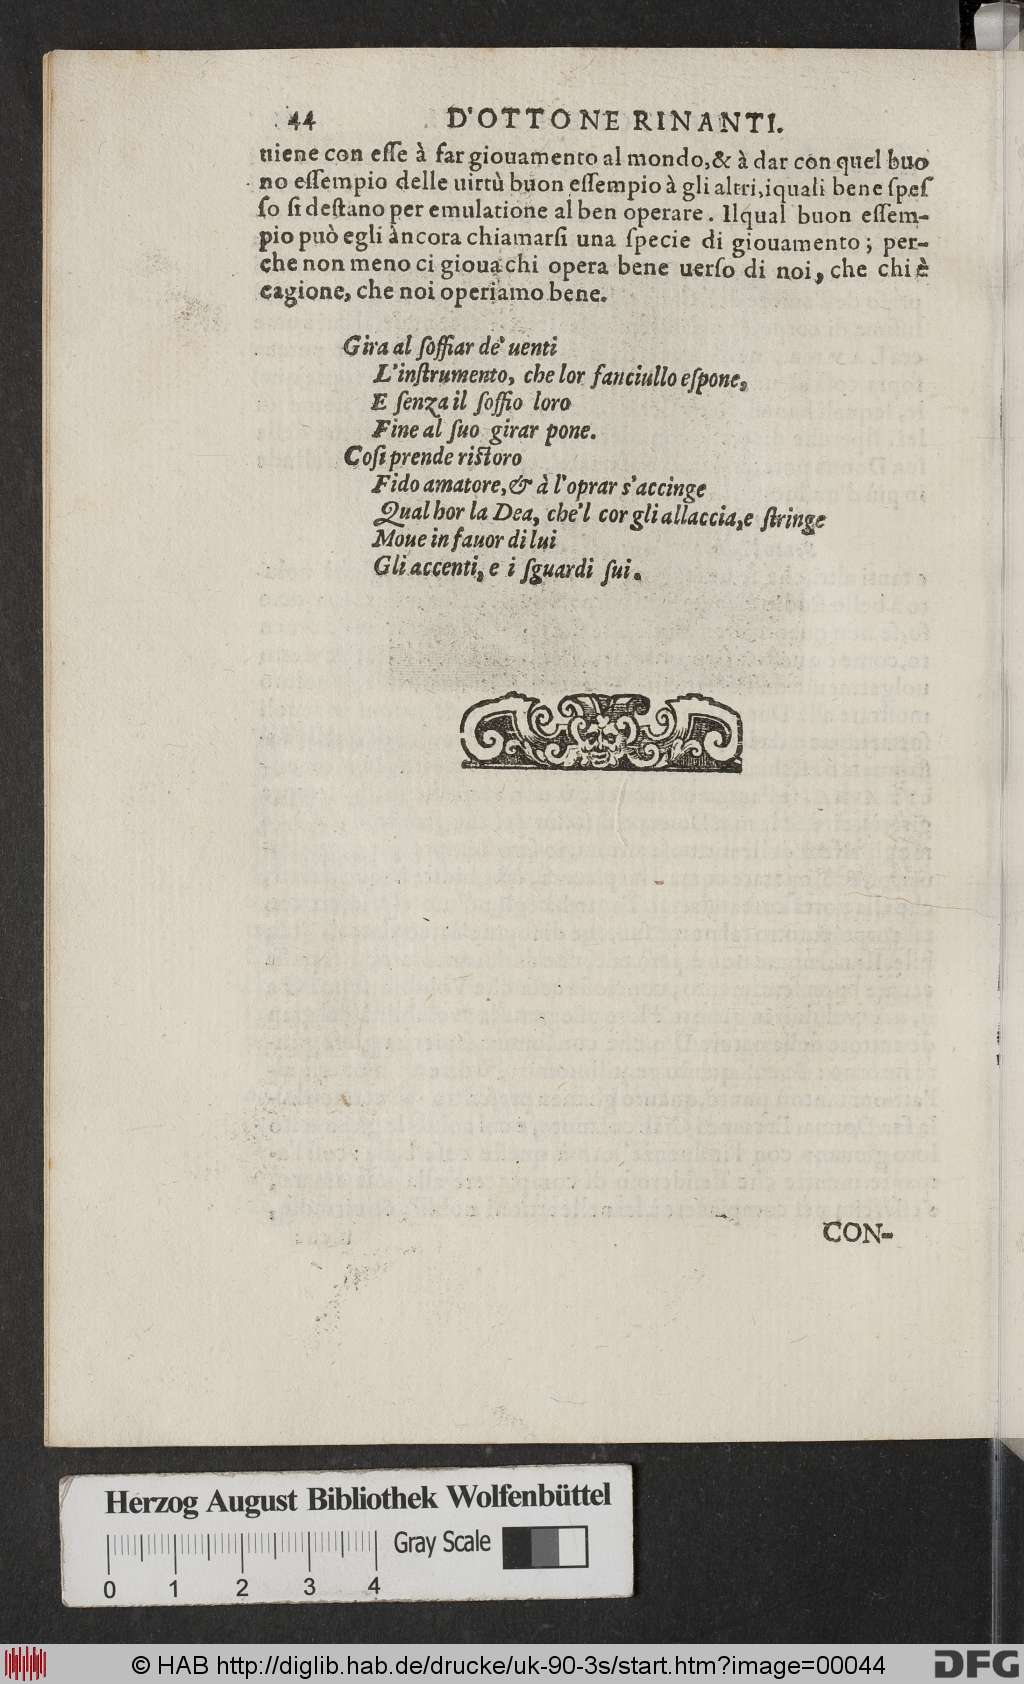 44 D'OTTONE RINANTI.
uiene con eſſe à far giouamento al mondo,& à dar con quel buo
no eſſempio delle uirtù buon eſſempio à gli altri,iquali bene ſpeſ
ſo ſi deſtano per emulatione al ben operare. Ilqual buon eſſem-
pio può egli àncora chiamarſi una ſpecie di giouamento; per-
che non meno ci gioua chi opera bene uerſo di noi, che chi è
cagione, che noi operiamo bene.
Gira al ſoffiar de' uenti
L'inſtrumento, che lor fanciullo eſpone,
E ſenza il ſoffio loro
Fine al ſuo girar pone.
Coſi prende riſtoro
Fido amatore, & à l'oprar s'accinge
Qual hor la Dea, che'l cor gli allaccia,e ſtringe
Moue in fauor di lui
Gli accenti, e i ſguardi ſui.
CON-
Herzog August Bibliothek Wolfenbüttel
Gray Scale
0 1 2 3 4
© HAB http://diglib.hab.de/drucke/uk-90-3s/start.htm?image=00044
DFG